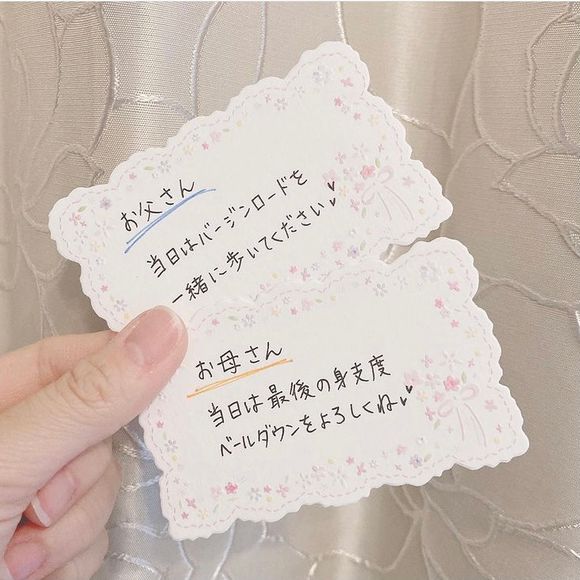 お父さん
当日はバージンロードを
一緒に歩いてください♥
お母さん
当日は最後の身支度
ベールダウンをよろしくね♥